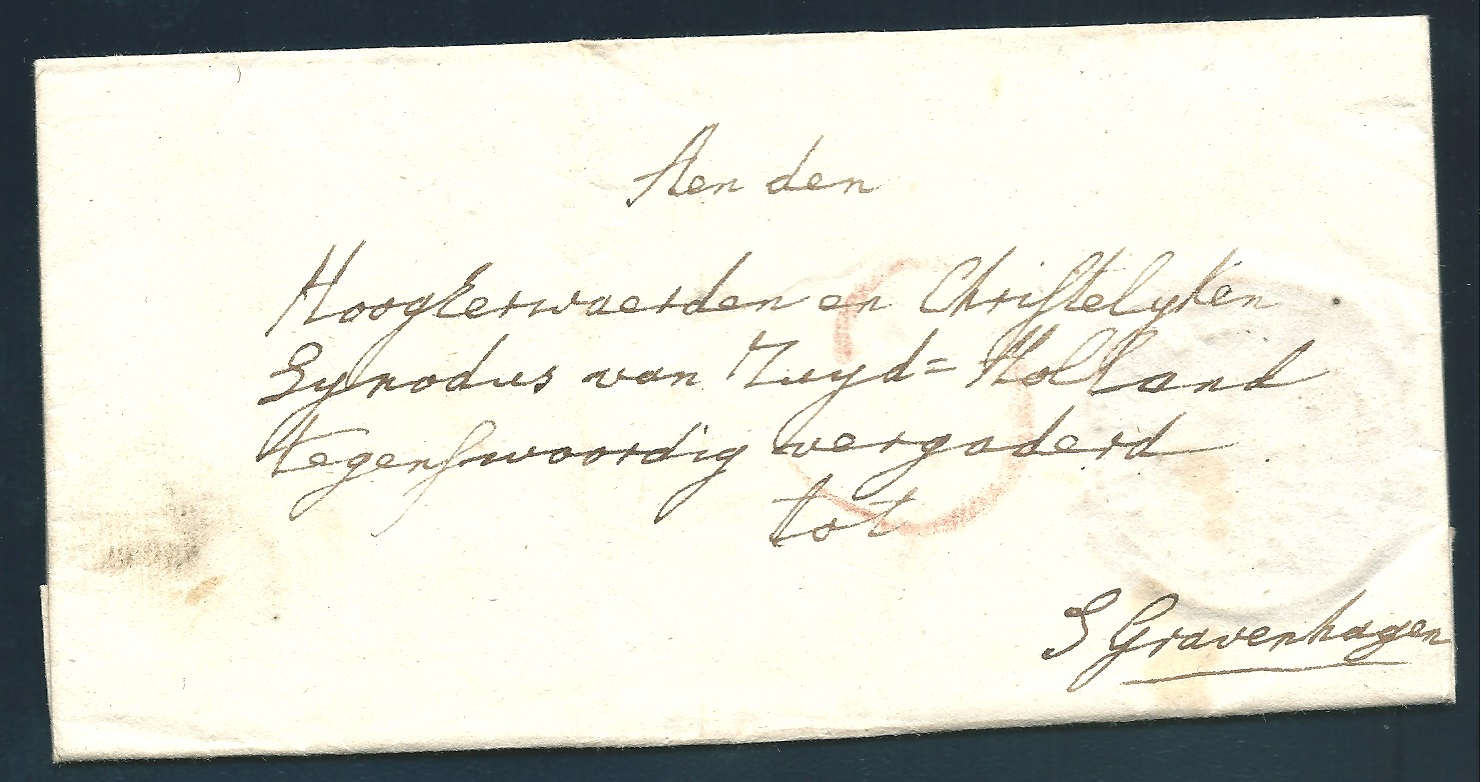 Aen den
Hoogkerwaerden en Christelyken
Synodus van Zuyd= Holland
tegenswoordig vergaderd
tot
S Gravenhagen